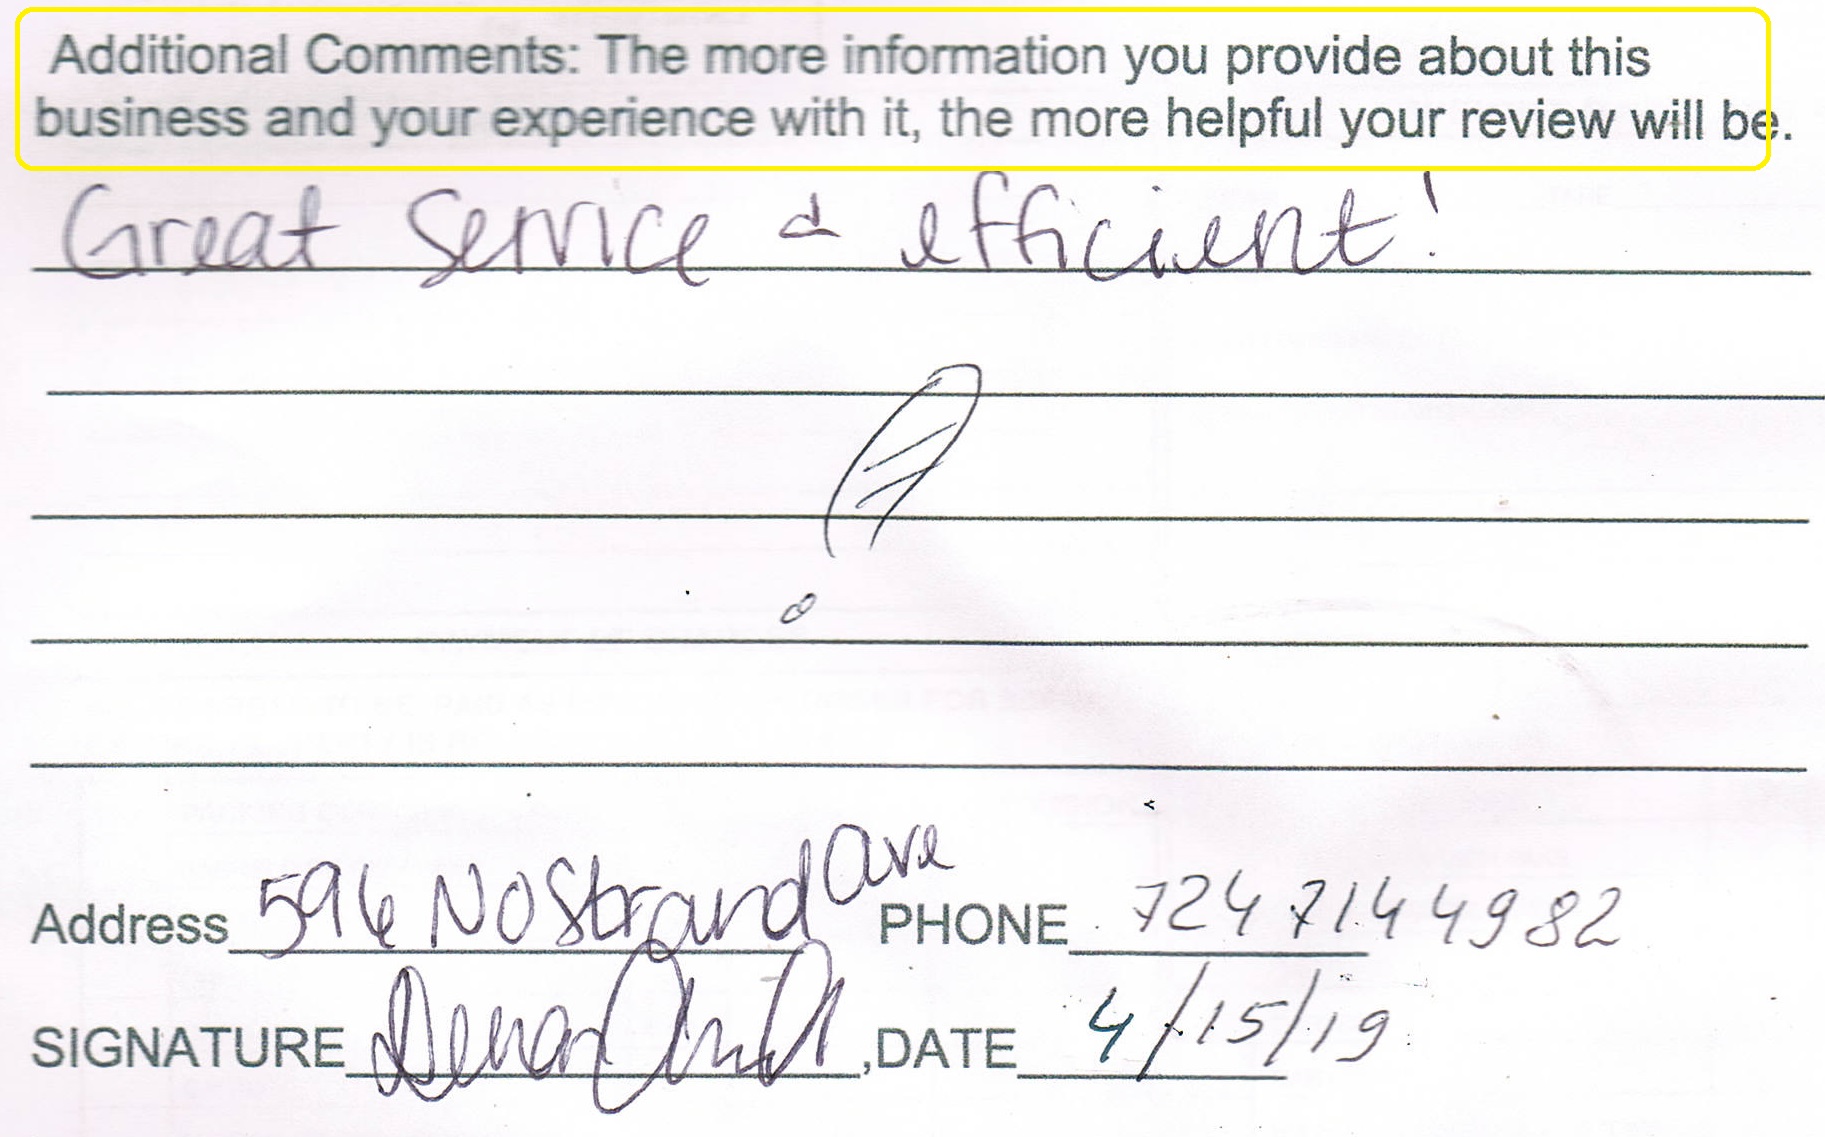 Additional Comments: The more information you provide about this
business and your experience with it, the more helpful your review will be.
Great service & efficient!
Address 596 Nostrand Ave PHONE 7247144982
SIGNATURE , DATE 4/15/19